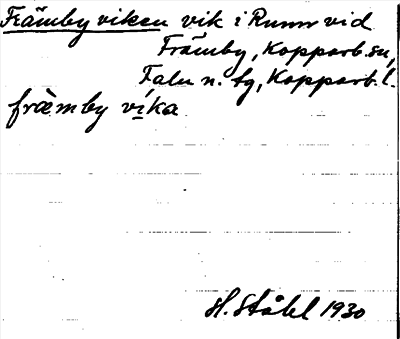 Främby viken vik i Runn vid
Främby, Kopparb. sn,
Falu n. tg, Kopparb. l.
fràemby víka
H. Ståhl 1930